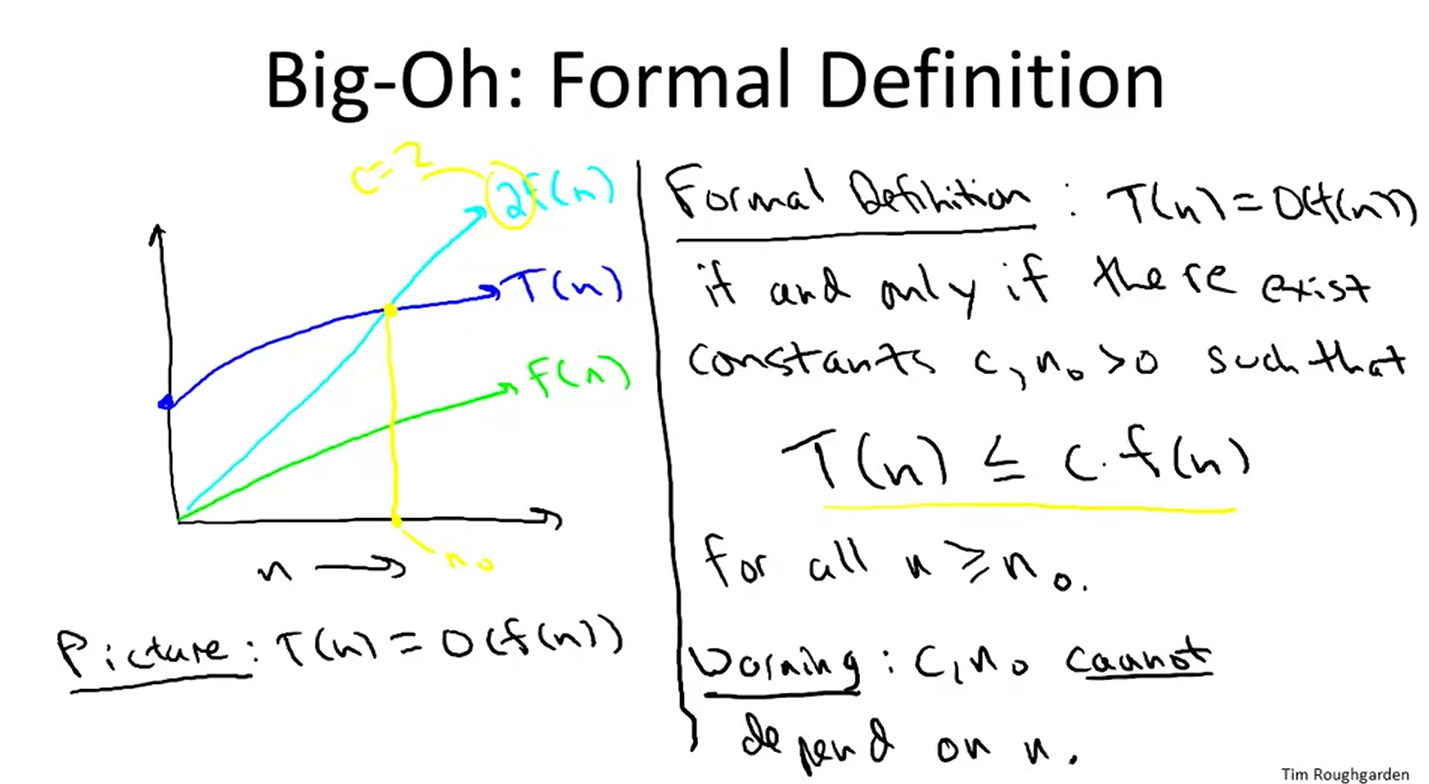 Big-Oh: Formal Definition
c=2
2f(n)
T(n)
f(n)
n₀
n →
Picture: T(n) = O(f(n))
Formal Definition : T(n) = O(f(n))
if and only if there exist
constants c, n₀ > 0 such that
T(n) ≤ c·f(n)
for all n ≥ n₀.
Warning: c, n₀ cannot
depend on n.
Tim Roughgarden